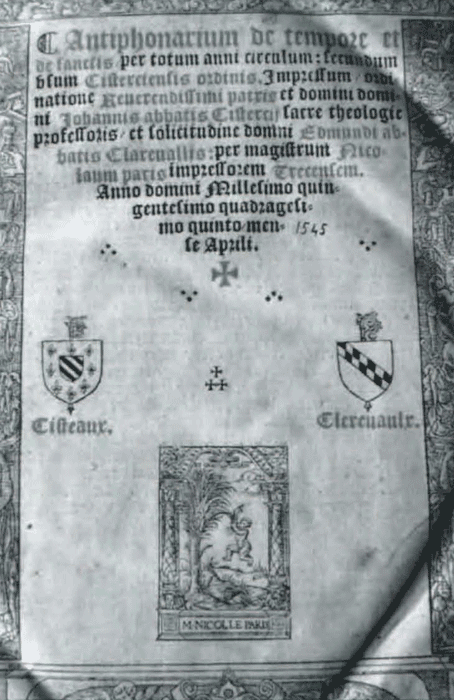 ☾ Antiphonarium de tempore et
de sanctis per totum anni circulum: secundum
vsum Cisterciensis ordinis. Impressum / ordi
natione Reuerendissimi patris et domini domi-
ni Johannis abbatis Cistercij sacre theologie
professoris / et solicitudine domni Edmundi ab-
batis Clareuallis: per magistrum Nico-
laum paris impressorem Trecensem.
Anno domini Millesimo quin-
gentesimo quadragesi-
mo quinto men- 1545
se Aprili.
Cisteaux.
Clereuaulx.
M·NICOLLE PARIS